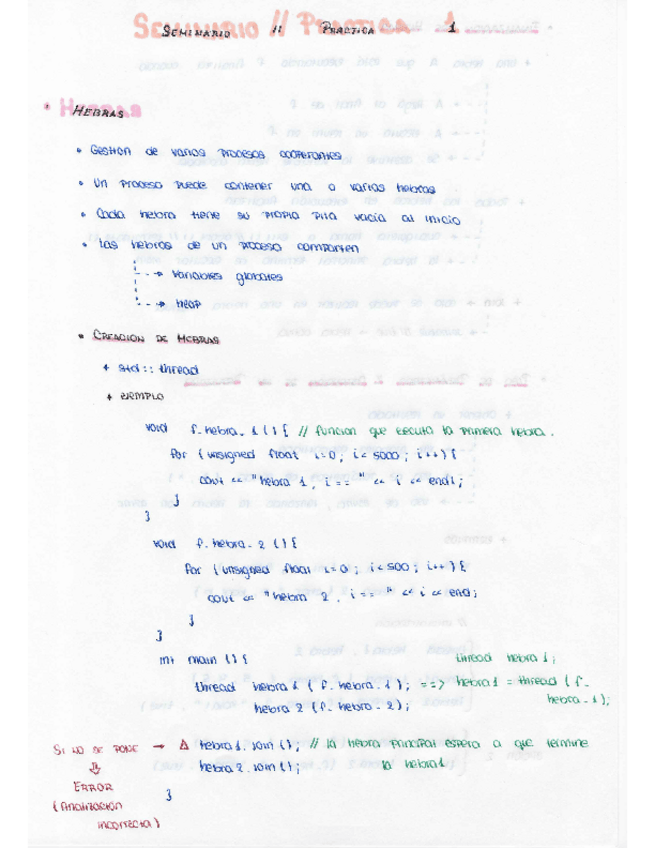 SEMINARIO // PRACTICA 1
* HEBRAS
• Gestion de varios procesos cooperantes
• Un proceso puede contener una o varias hebras
• Cada hebra tiene su propia pila vacia al inicio
• Las hebras de un proceso comparten
--→ variables globales
--→ heap
• CREACION DE HEBRAS
+ std :: thread
+ EJEMPLO
void f_hebra_1 () { // funcion que ejecuta la primera hebra.
for (unsigned float i=0; i< 5000; i++) {
cout << "hebra 1, i == " << i << endl;
}
}
void f_hebra_2 () {
for (unsigned float i=0; i<500; i++) {
cout << "hebra 2, i == " << i << endl;
}
}
int main () {
thread hebra1;
thread hebra1 ( f_hebra_1 ); ==> hebra1 = thread ( f_
hebra_1);
hebra 2 (f_hebra_2);
SI NO SE PONE → Δ hebra1.join (); // la hebra principal espera a que termine
la hebra1
hebra2.join ();
ERROR
}
(finalización
incorrecta)